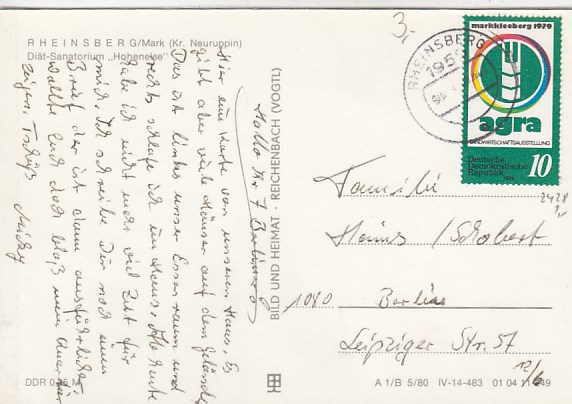 RHEINSBERG/Mark (Kr. Neuruppin)
Diät-Sanatorium „Hohenelse"
Hier eine Karte von unserem Haus. Es
gibt aber viele Häuser auf dem Gelände
Das ist links unser Essenraum und
rechts schlafe ich im Haus. Heute
habe ich nicht mehr viel Zeit für
mich. Ich schreibe Dir noch einen
Brief der ist dann ausführlicher.
Wollte Euch doch bloß mein Quartier
zeigen. Tschüß
BILD UND HEIMAT REICHENBACH (VOGTL)
3,-
RHEINSBERG
195
markkleeberg 1979
agra
LANDWIRTSCHAFTSAUSSTELLUNG
Deutsche
Demokratische
Republik
10
1979
2428
Familie
Heins / Schobert
1080 Berlin
Leipziger Str. 57
12/6
DDR 0,25 M
A 1/B 5/80 IV-14-483 01 04 11 049